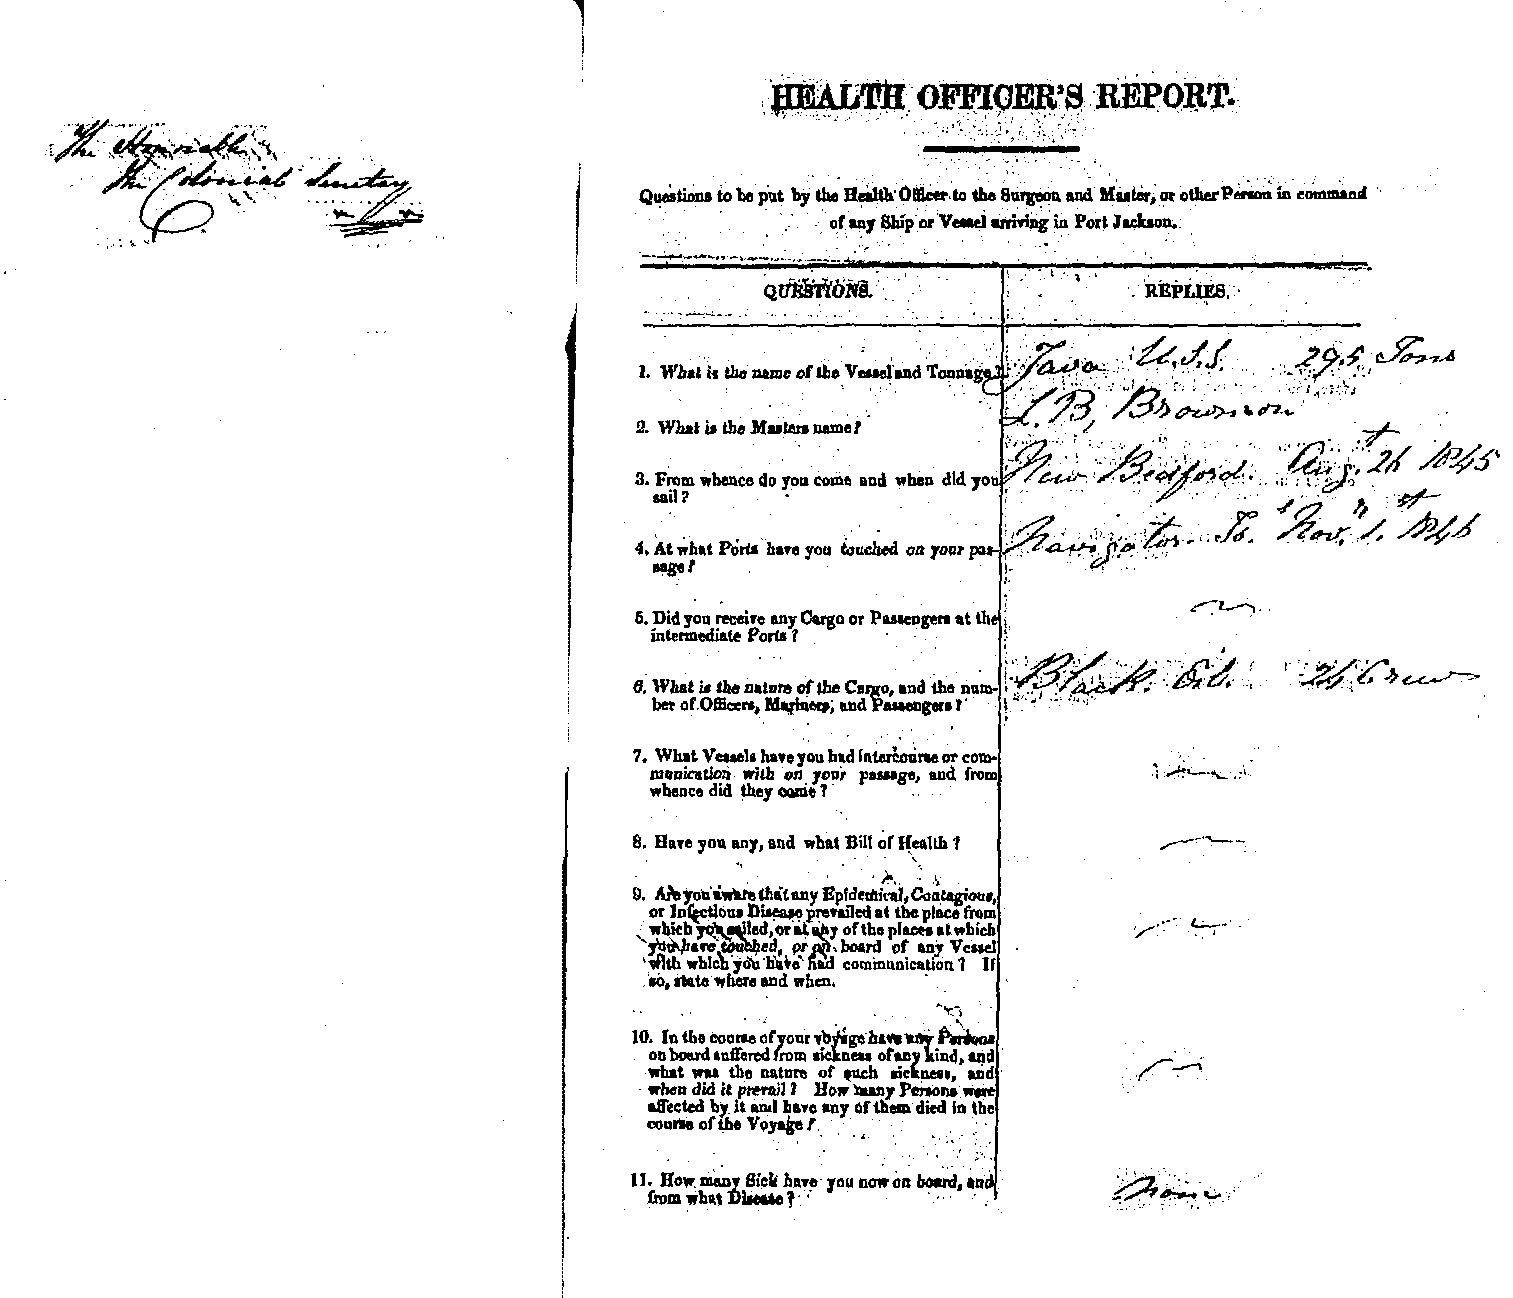 The Honorable
The Colonial Secretary
HEALTH OFFICER'S REPORT.
Questions to be put by the Health Officer to the Surgeon and Master, or other Person in command
of any Ship or Vessel arriving in Port Jackson.
QUESTIONS.
REPLIES.
1. What is the name of the Vessel and Tonnage?
Java U.S.S. 295 Tons
2. What is the Masters name?
L. B. Brownson
3. From whence do you come and when did you
sail?
New Bedford. Augt. 26 1845
4. At what Ports have you touched on your pas-
sage?
Navigators Is. Nov. 1st 1846
5. Did you receive any Cargo or Passengers at the
intermediate Ports?
6. What is the nature of the Cargo, and the num-
ber of Officers, Mariners, and Passengers?
Black Oil. 26 Crew
7. What Vessels have you had intercourse or com-
munication with on your passage, and from
whence did they come?
8. Have you any, and what Bill of Health?
9. Are you aware that any Epidemical, Contagious,
or Infectious Disease prevailed at the place from
which you sailed, or at any of the places at which
you have touched, or on board of any Vessel
with which you have had communication? If
so, state where and when.
10. In the course of your voyage have any Persons
on board suffered from sickness of any kind, and
what was the nature of such sickness, and
when did it prevail? How many Persons were
affected by it and have any of them died in the
course of the Voyage?
11. How many Sick have you now on board, and
from what Disease?
None